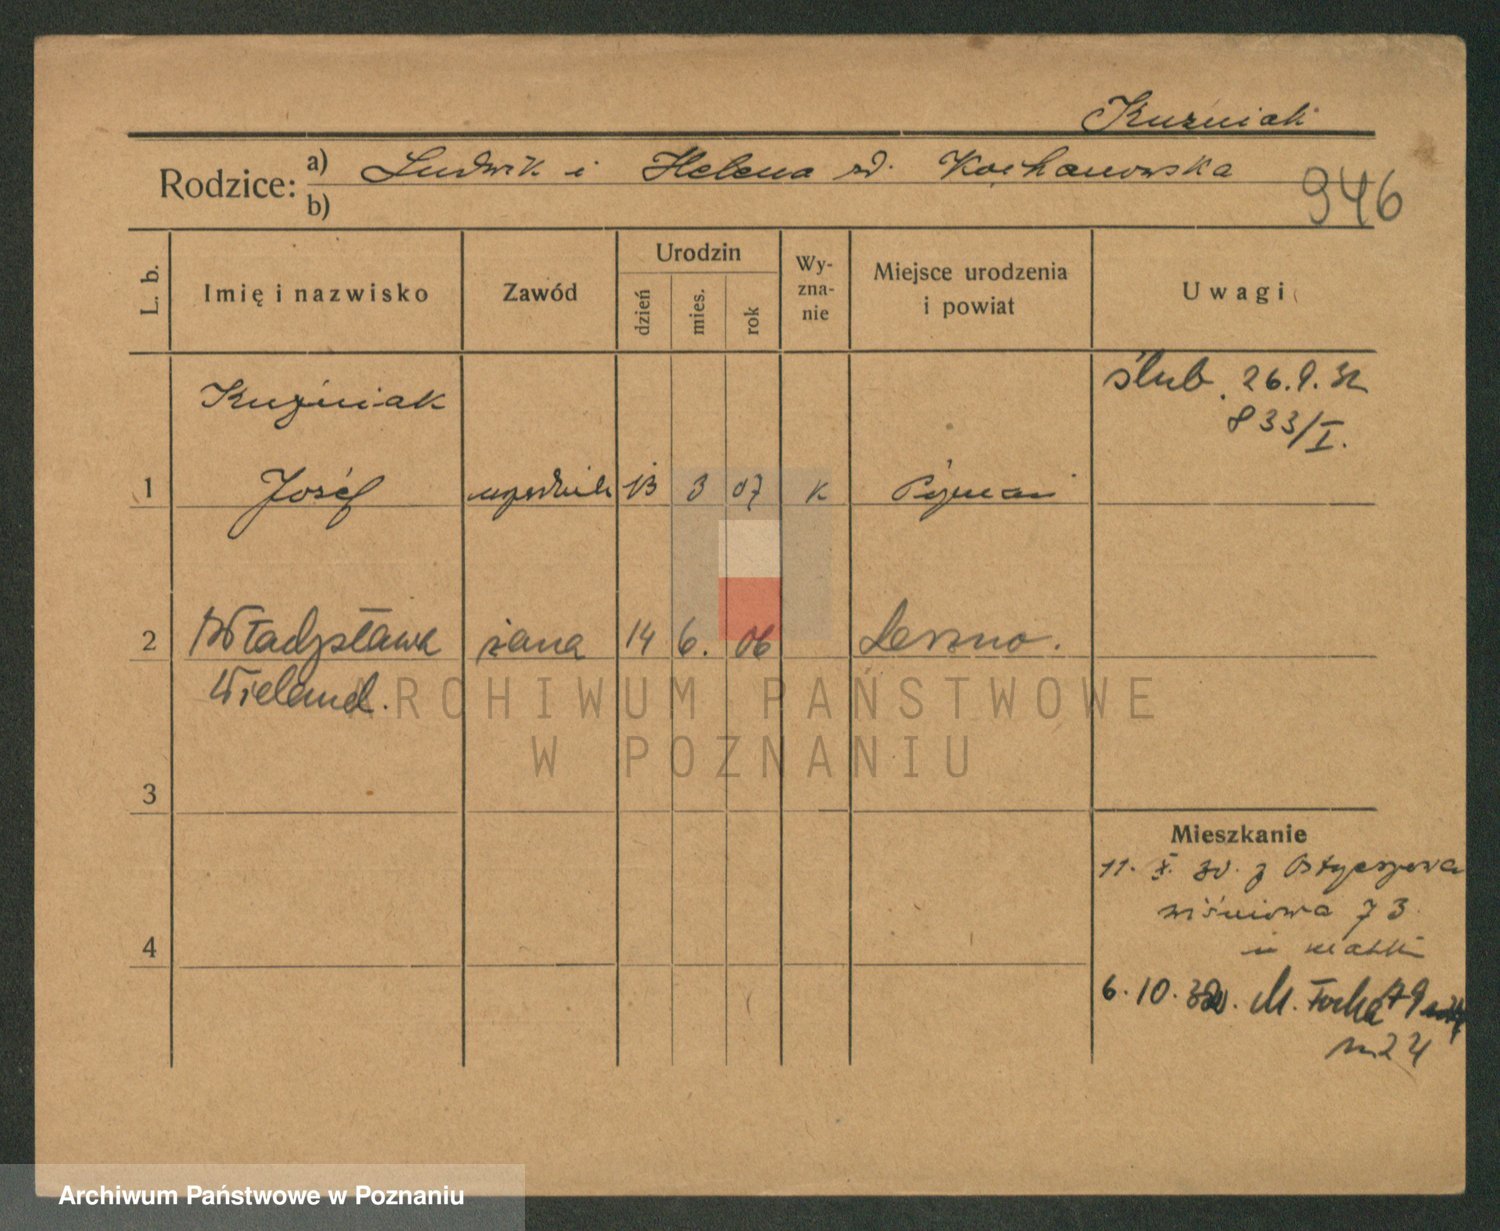 Kuźniak
Rodzice: a) Ludwik i Helena zd. Kochanowska
b)
946
L. b.
Imię i nazwisko
Zawód
Urodzin
dzień
mies.
rok
Wy-
zna-
nie
Miejsce urodzenia
i powiat
Uwagi
Kuźniak
ślub. 26.9.32
833/I.
1 Józef urzędnik 13 3 07 K Poznań
2 Władysława żona 14 6. 06 Leszno.
Wieland.
ARCHIWUM PAŃSTWOWE
W POZNANIU
3
Mieszkanie
11. X. 30. z
wiśniowa 73
4
u matki
6.10.32. M. Focha 79
m 24
Archiwum Państwowe w Poznaniu